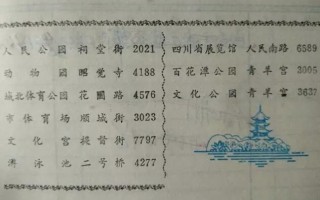 人民公園 祠堂街 2021
动物園 昭觉寺 4188
城北体育公园 花圃路 4576
市体育场 顺城街 3023
文化宫 提督街 7797
游泳池 二号桥 4277
四川省展览馆 人民南路 6589
百花潭公園 青羊宫 3005
文化公園 青羊宫